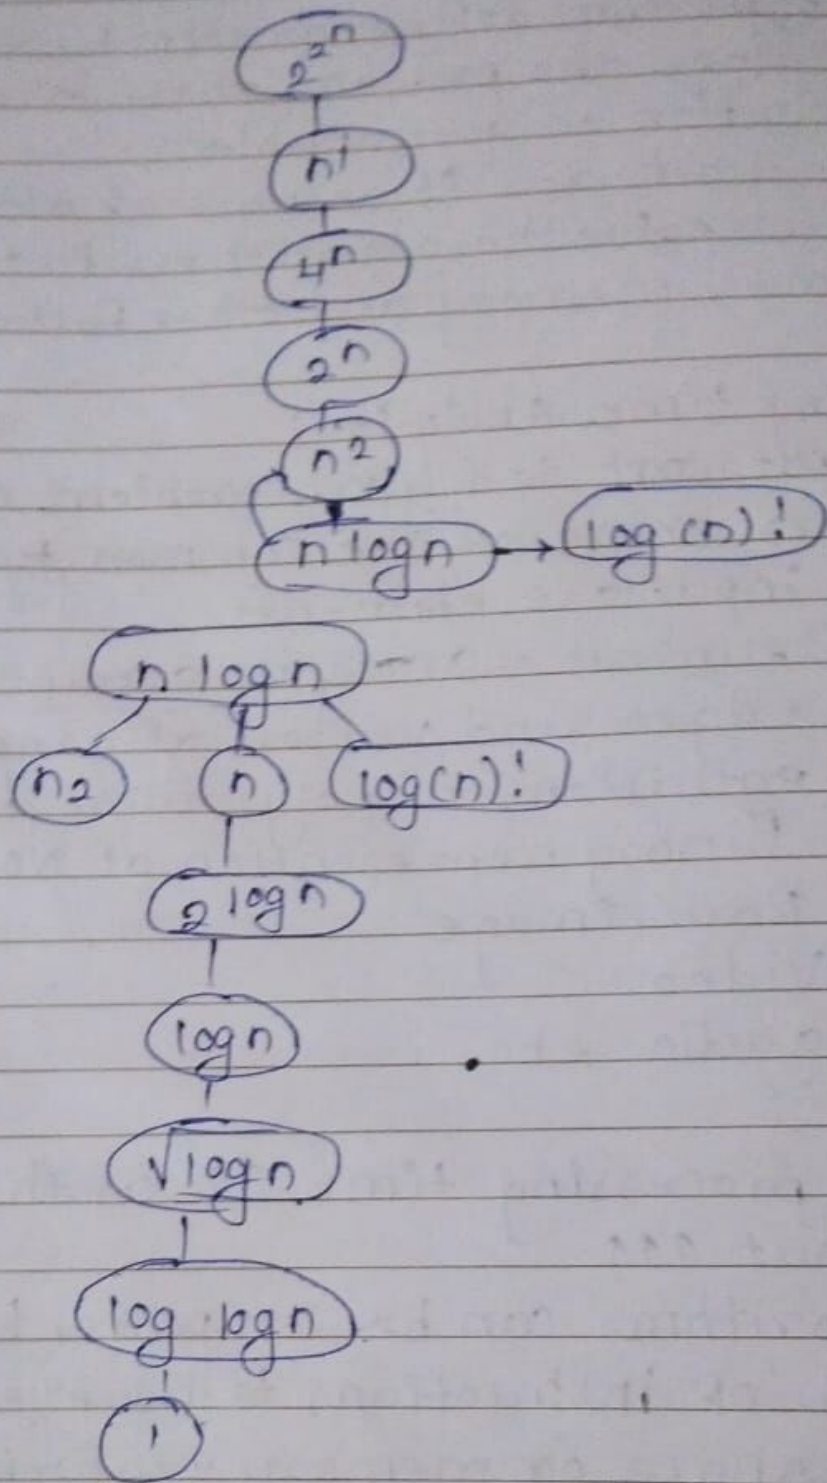 2^2^n
n!
4^n
2^n
n^2
n logn
log (n)!
n logn
n2
n
log(n)!
2^logn
logn
√logn
log logn
1